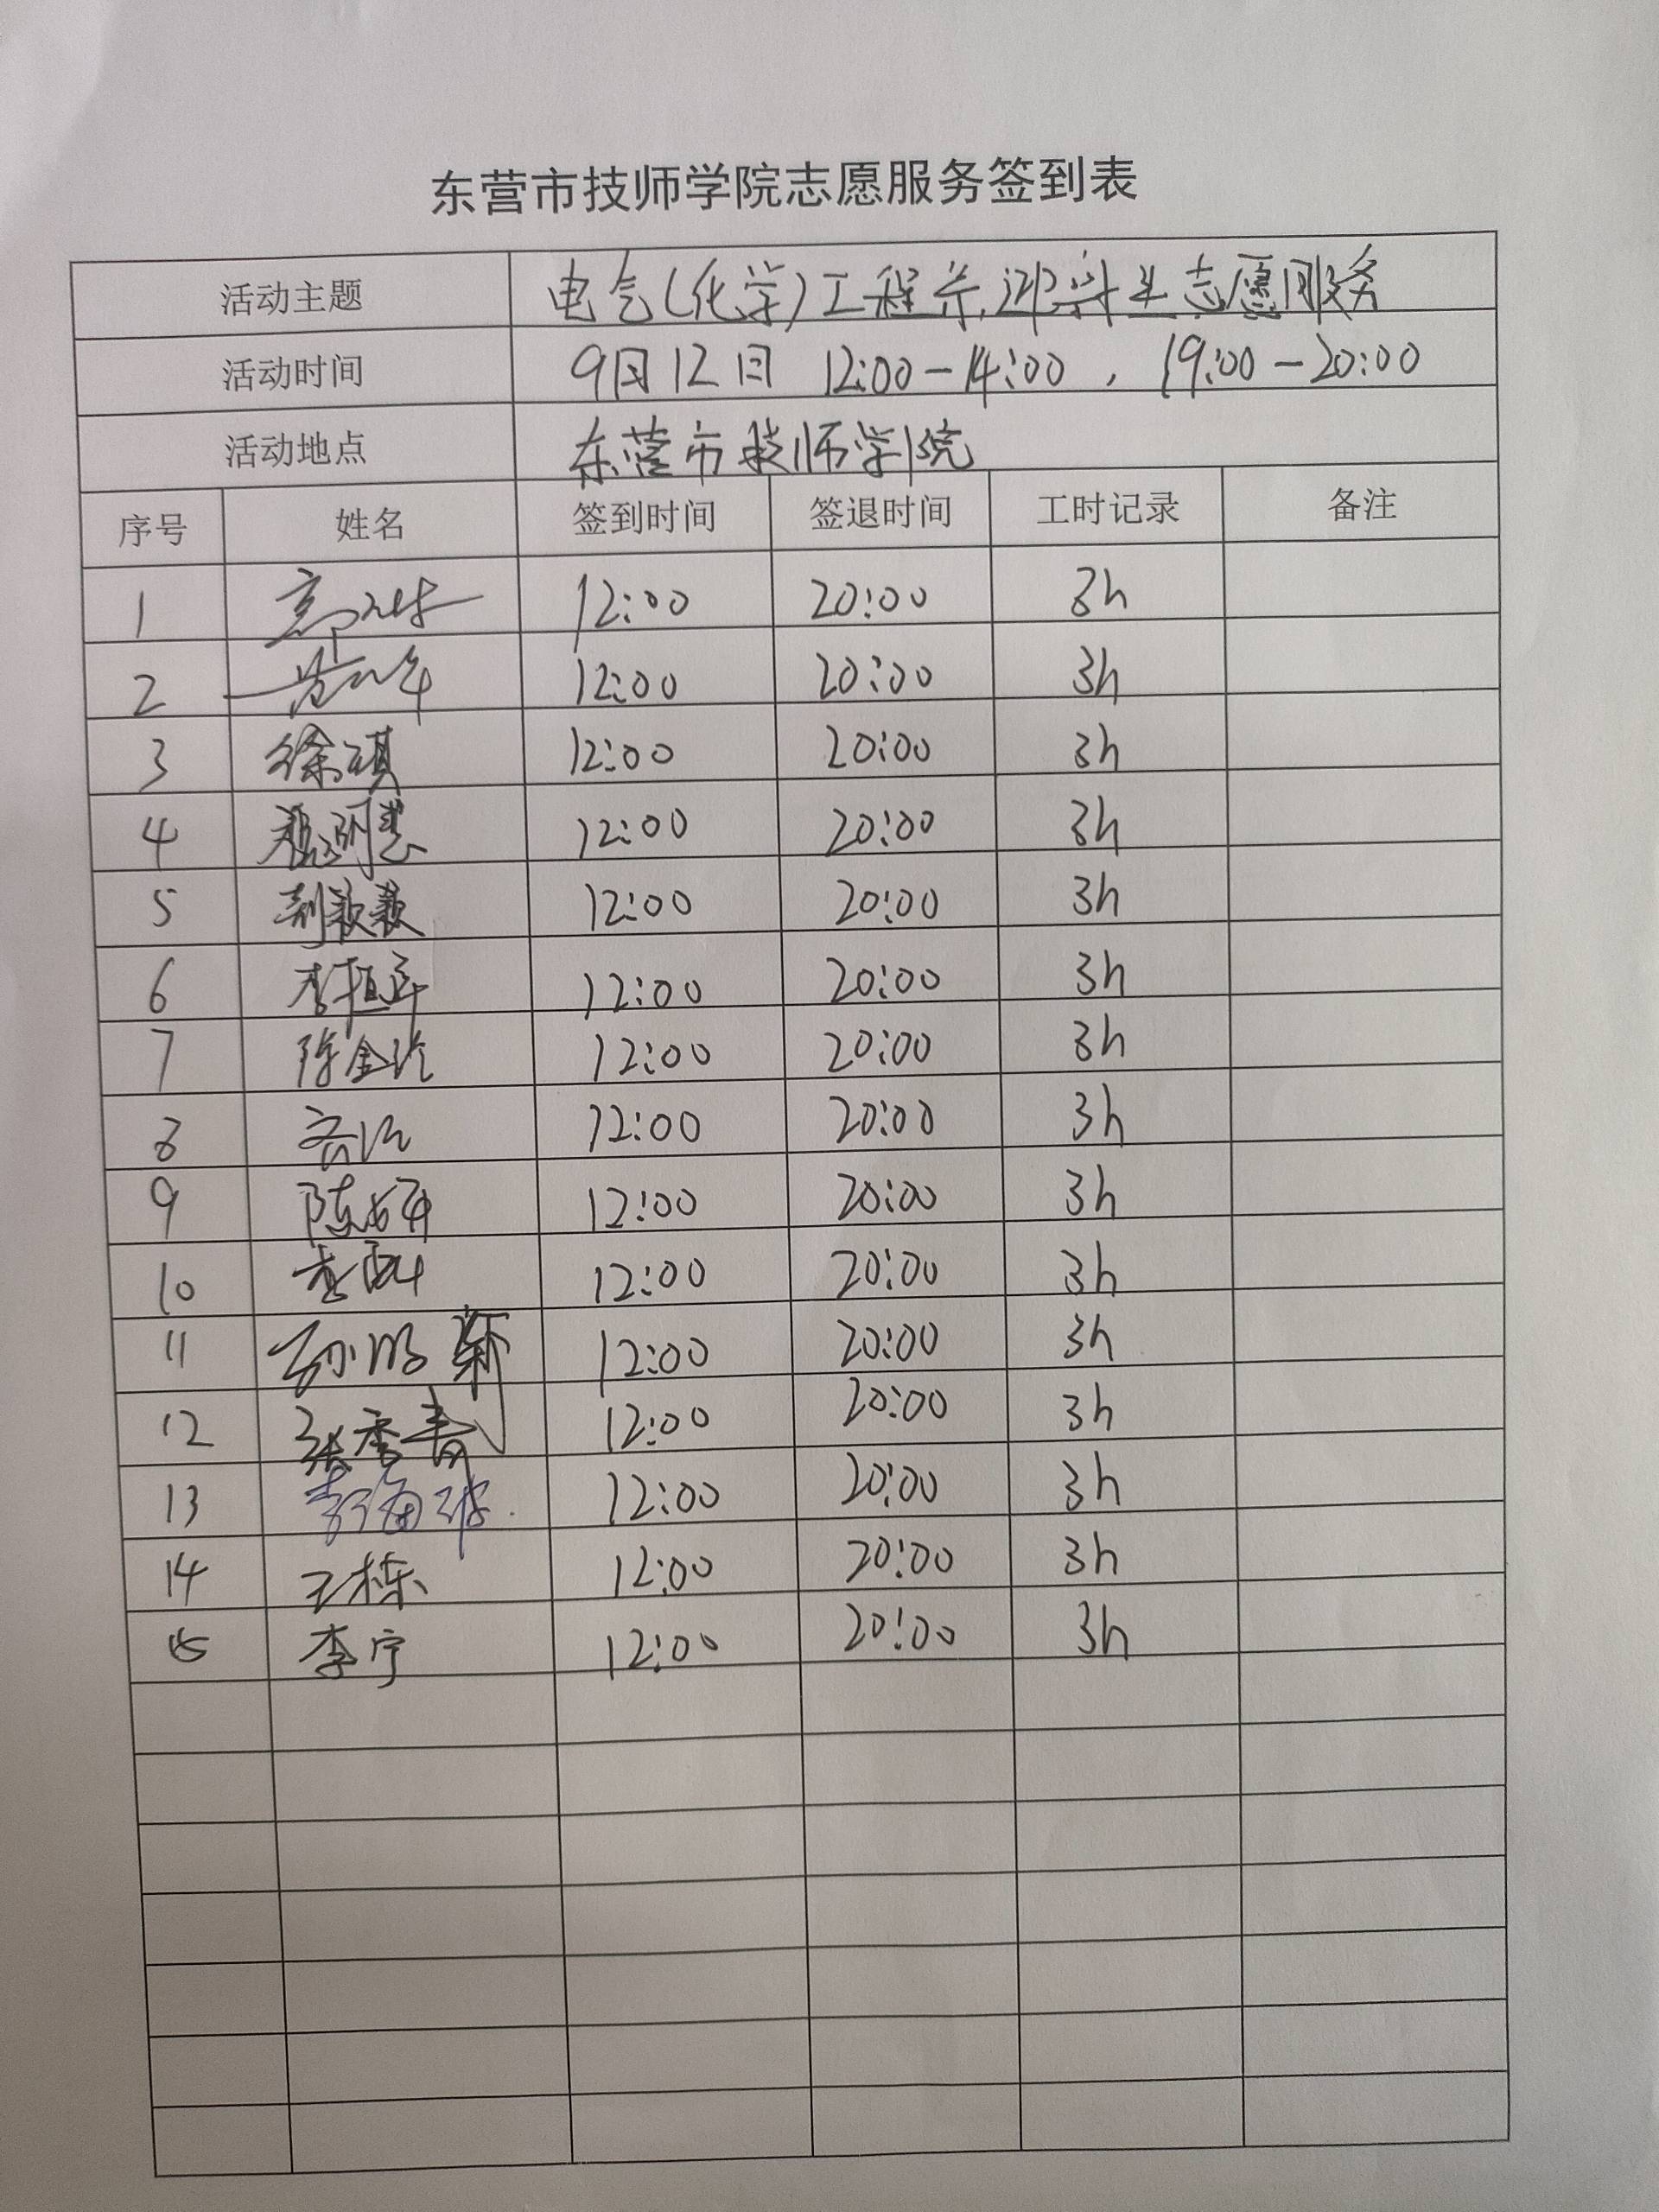 东营市技师学院志愿服务签到表
活动主题 电气(化学)工程系迎新生志愿服务
活动时间 9月12日 12:00-14:00, 19:00-20:00
活动地点 东营市技师学院
序号 姓名 签到时间 签退时间 工时记录 备注
1 12:00 20:00 3h
2 12:00 20:00 3h
3 徐琪 12:00 20:00 3h
4 12:00 20:00 3h
5 12:00 20:00 3h
6 12:00 20:00 3h
7 12:00 20:00 3h
8 12:00 20:00 3h
9 12:00 20:00 3h
10 12:00 20:00 3h
11 12:00 20:00 3h
12 张秀青 12:00 20:00 3h
13 12:00 20:00 3h
14 王栋 12:00 20:00 3h
15 李宁 12:00 20:00 3h